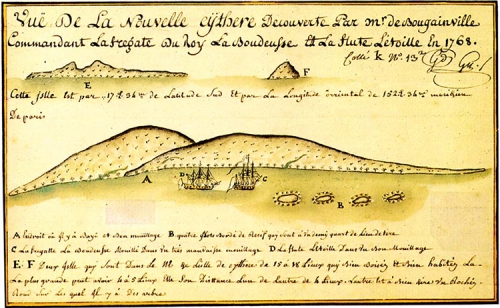 Vuë De La Nouvelle cÿthere Decouverte Par mr. de Bougainville
Commandant La fregate Du Roy La Boudeuse Et La flute L'etoille En 1768.
Cotté k No. 13
E
F
Cette Jsle Est par 17d. 34m. de Latitude Sud Et par La Longitude orriental de 152d. 36m. meridien
De paris
A
D
C
B
A Lendroit où il y a Bon mouillage B quatre jlots Bordé de Recif qui sont à un demy quart de Lieu de terre
C La fregatte La Boudeuse Mouillé Dans un tres mauvaise mouillage D La flute L'etoille Dans un Bon Mouillage
E. F Deux jsle qui sont Dans Le de L'isle de cythere de 15 à 18 Lieux qui Bien Boisés Et Bien habitée La
La plus grande peut avoir 4 à 5 Lieux Elle Son Distance L'un de L'autre de 4 Lieux, L'autre
Rond Sur Les quel il y a Des arbre